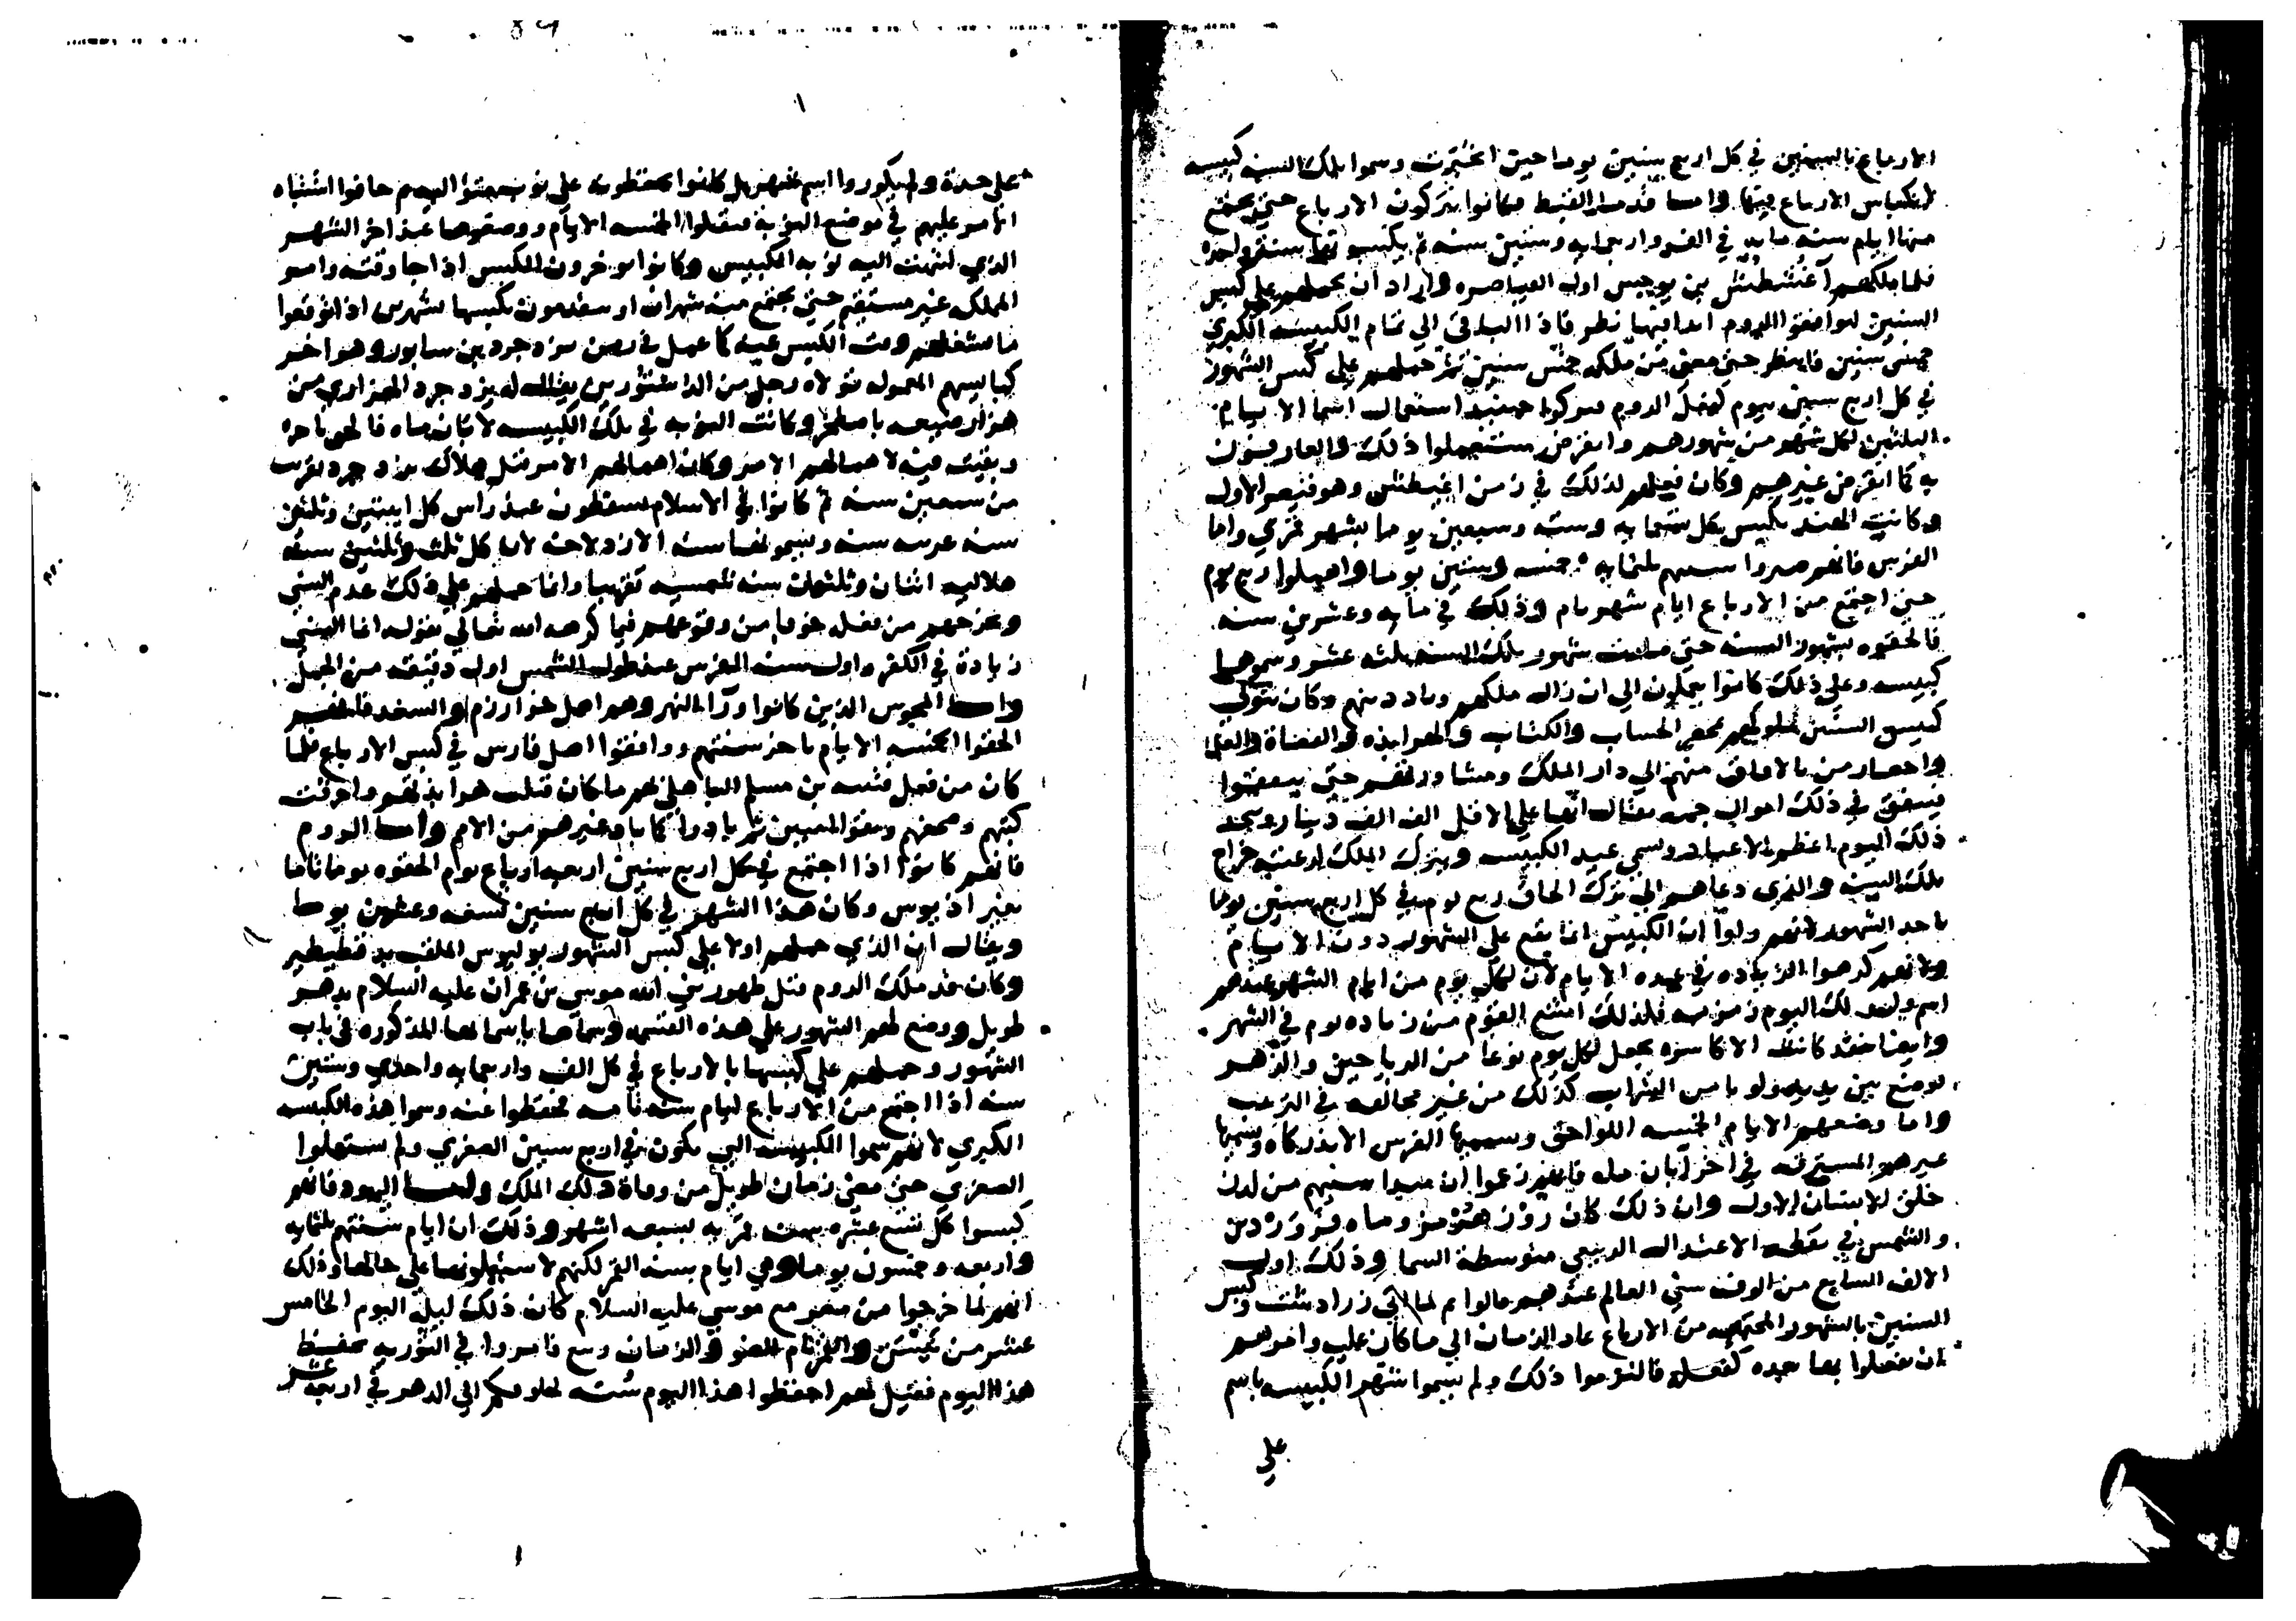 الارباع بالسنين في كل اربع سنين يوما حين انجبرت وسموا تلك السنة كبيسه
لانكباس الارباع فيها واما قدماء القبط فكانوا يتركون الارباع حتى يجتمع
منها ايام سنه تامه في الف واربعمايه وستين سنه ثم يكبسونها بسنه واحده
فلما ملكهم اغشطس بن يوجيس اول القياصره واراد ان يحملهم على كبس
السنين ليوافقوا الروم ابدا فيها نظر فاذا الباقى الي تمام الكبيسه الكبرى
خمس سنين فانتظر حتى مضى من ملكه خمس سنين ثم حملهم على كبس الشهور
في كل اربع سنين بيوم كفعل الروم فتركوا حينيذ استعمال اسما الايام
الثلثين لكل شهر من شهورهم وانقرض مستعملوا ذلك والعارفون
به كما انقرض غيرهم وكان فعلهم لذلك في زمن اغسطس وهو قيصر الاول
وكانت الهند تكبس كل تسعمايه وسته وسبعين يوما بشهر قمري واما
الفرس فانهم صيروا سنتهم ثلثمايه خمسه وستين يوما واهملوا ربع يوم
حتى اجتمع من الارباع ايام شهر تام وذلك في مايه وعشرين سنه
فالحقوه بشهور السنه حتى صارت شهور تلك السنه ثلثه عشر وسموها
كبيسه وعلى ذلك كانوا يعملون الي ان زال ملكهم وباد دينهم وكان يتولى
كبس السنين لملوكهم بمحضر الحساب والكتاب والهرابذه والقضاة والعلما
واحضار من بالافاق منهم الي دار الملك ومشاورتهم حتى يتفقوا
فينفق في ذلك اموال جمه يقال انها على الاقل الف الف دينار ويتخذ
ذلك اليوم اعظم الاعياد ويسمى عيد الكبيسه ويترك الملك لرعيته خراج
تلك السنه والذي دعاهم الي ترك الحاق ربع يوم في كل اربع سنين يوما
باحد الشهور لانهم راوا ان الكبيس انما يقع على الشهور دون الايام
ولانهم كرهوا الزياده في عده الايام لان لكل يوم من ايام الشهر عندهم
اسم ولهم لذلك اليوم زمزمه فلذلك امتنع القوم من زياده يوم في الشهر
وايضا فقد كانت الاكاسره يجعل لكل يوم نوعا من الرياحين والزهر
يوضع بين يديه ولونا من الشراب كذلك من غير مخالفه في الترتيب
واما وضعهم الايام الخمسه اللواحق وتسميها الفرس الاندركاه ويسميها
غيرهم المسترقه في اخر ابان ماه فانهم زعموا ان مبدا سنيهم من لدن
خلق الانسان الاول وان ذلك كان روز هرمز وماه فروردين
والشمس في نقطه الاعتدال الربيعي متوسطة السما وذلك اول
الالف السابع من الوف سني العالم عندهم قالوا ثم لما اتي زرادشت وكبس
السنين بالشهور المجتمعه من الارباع عاد الزمان الي ما كان عليه وامرهم
ان يفعلوا بها بعده كفعله فالتزموا ذلك ولم يسموا شهر الكبيسه باسم
علي
على حدة ولم يكرروا اسم شهر بل كانوا يحفظونه على نوب متواليه ثم خافوا اشتباه
الامر عليهم في موضع النوبه فنقلوا الخمسه الايام ووضعوها عند اخر الشهر
الذي انتهت اليه نوبه الكبيس وكانوا يوخرون الكبس اذا جا وقته وامر
المملكه غير مستقيم حتى يجتمع منه شهران او يتقدمون بكبسها بشهرين اذا توقعوا
ما يشغلهم وقت الكبس عنه كما عمل في زمن يزدجرد بن سابور وهو اخر
كبايسهم المعموله تولاه رجل من الدستورين يقال له يزدجرد الهزاري من
هزار ضيعه باصطخر وكانت النوبه في تلك الكبيسه لابان ماه فالحق باخره
وبقيت فيه لاهمالهم الامر وكان اهمالهم الامر قبل هلاك يزدجرد بقريب
من سبعين سنه ثم كانوا في الاسلام يسقطون عند راس كل اثنتين وثلثين
سنه عربيه سنه ويسمونها سنه الازدلاف لان كل ثلث وثلثين سنة
هلاليه اثنان وثلثون سنه شمسيه تقريبا وانما حملهم على ذلك عدم النسي
وتحرجهم من فعله خوفا من وقوعهم فيما كرهه الله تعالي بقوله انما النسي
زيادة في الكفر واول سنه الفرس عند حلول الشمس اول دقيقه من الحمل
واما المجوس الذين كانوا ورآ النهر وهم اهل خوارزم والسغد فانهم
الحقوا الخمسه الايام باخر سنتهم ووافقوا اهل فارس في كبس الارباع فلما
كان من فعل قتيبه بن مسلم الباهلي بهم ما كان قتلت هرابذتهم واحرقت
كتبهم وصحفهم وبقوا اميين ثم بادوا كما باد غيرهم من الامم واما الروم
فانهم كانوا اذا اجتمع في كل اربع سنين اربعه ارباع يوم الحقوه يوما تاما
بفبراديوس وكان هذا الشهر في كل اربع سنين تسعه وعشرين يوما
ويقال ان الذي حملهم اولا على كبس الشهور يوليوس الملقب بدقطيطير
وكان قد ملك الروم قبل ظهور نبي الله موسى بن عمران عليه السلام بدهر
طويل ووضع لهم الشهور على هذه القسمه وسماها باسمائها المذكوره في باب
الشهور وحملهم على كبسها بالارباع في كل الف واربعمايه واحدي وستين
سنه اذا اجتمع من الارباع ايام سنه تامه فحفظوا عنه وسموا هذه الكبيسه
الكبري لانهم سموا الكبيسه التي تكون في اربع سنين الصغري ولم يستعملوا
الصغري حتى مضى زمان طويل من وفاة ذلك الملك واما اليهود فانهم
كبسوا كل تسع عشره سنه قمريه بسبعه اشهر وذلك ان ايام سنتهم ثلثمايه
واربعه وخمسون يوما وهي ايام سنه القمر لكنهم لا يستعملونها على حالها وذلك
انهم لما خرجوا من مصر مع موسي عليه السلام كان ذلك ليله اليوم الخامس
عشر من نيسن والقمر تام الضو والزمان ربيع فامروا في التوريه بحفظ
هذا اليوم فقيل لهم احفظوا هذا اليوم سنه لخلوفكم الي الدهر في اربعه عشر